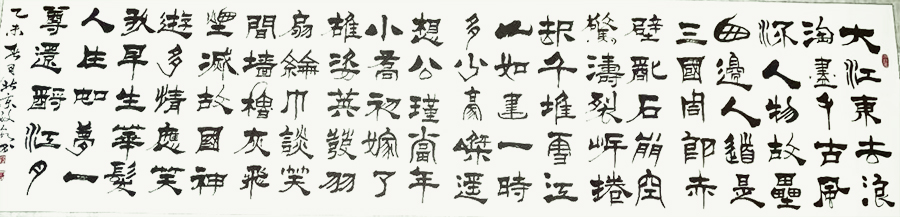 大江東去浪
淘盡千古風
流人物故壘
西邊人道是
三國周郎赤
壁亂石崩空
驚濤裂岸捲
起千堆雪江
山如畫一時
多少豪傑遥
想公瑾當年
小喬初嫁了
雄姿英發羽
扇綸巾談笑
間墻櫓灰飛
煙滅故國神
遊多情應笑
我早生華髮
人生如夢一
尊還酹江月
乙未春月北京